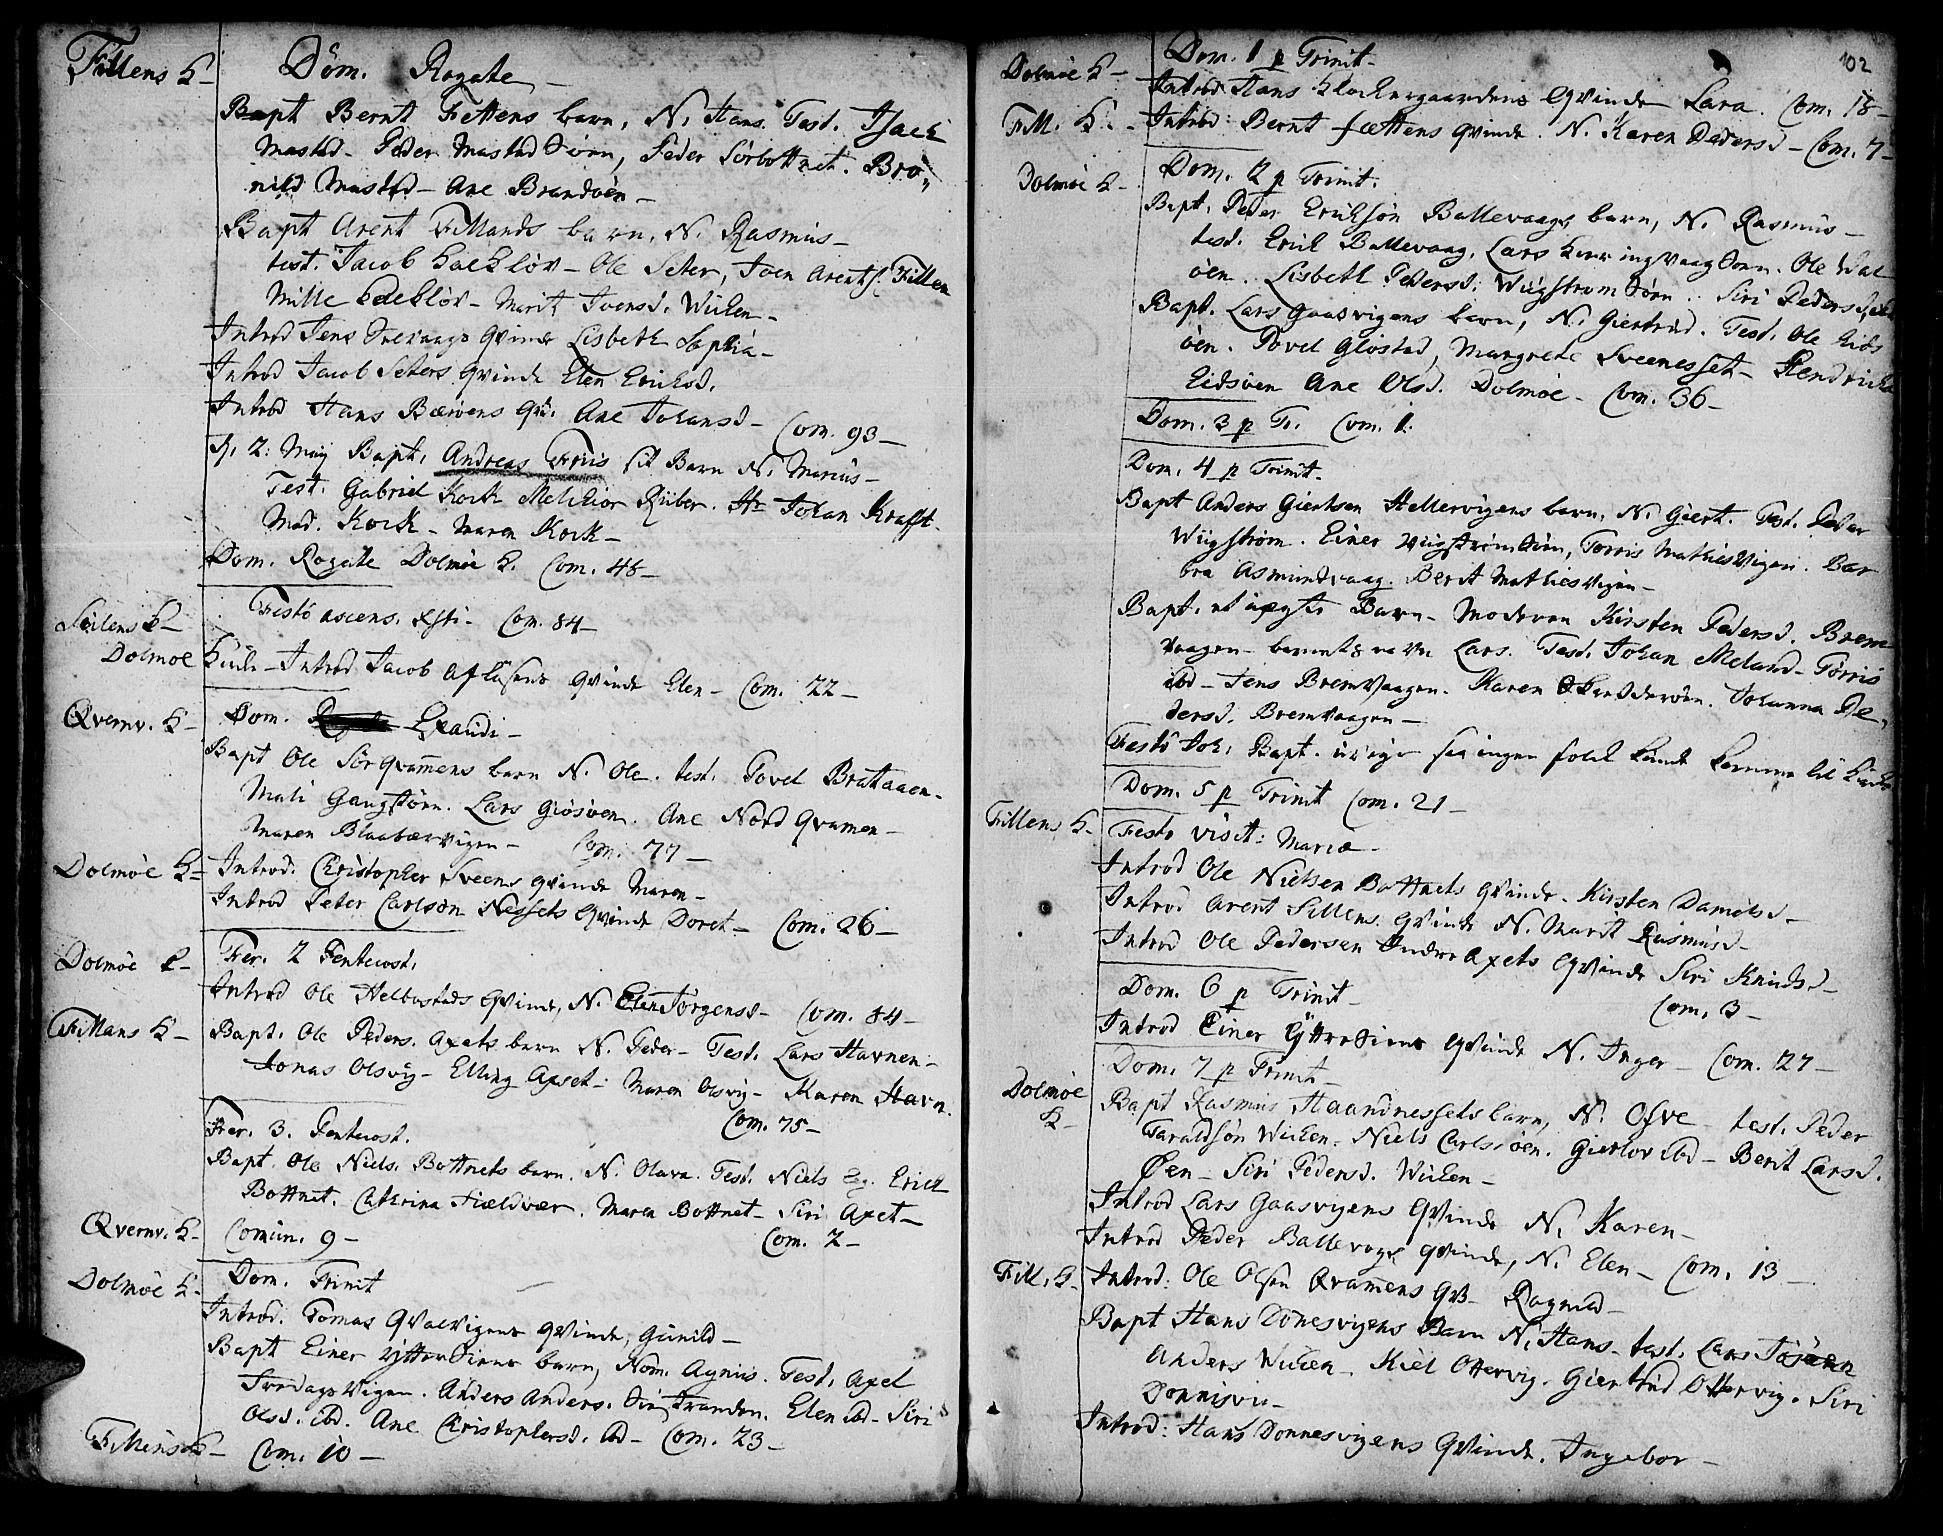 Fillens K- Dom. Rogate -
Bapt Bernt Fettens barn, N. Hans. Test. Isach
Mastad- Peder Mastad Sörn, Peder Sörbottnet. Brö„
nild Mastad- Ane Brandöen-
Bapt Arent Fillands barn. N. Rasmus-
test. Jacob Hacklöv- Ole Seter, Joen Arents. Fillen
Mille Hacklöv- Marit Joensd. Wiiken-
Introd Jens qvinde Lisbeth Sophia-
Introd Jacob Seters qvinde Elen Ericksd.
Introd Hans qv. Ane Johansd- Com. 93-
d. 2. Maij Bapt. Andreas Friis sit Barn N. Marius-
Test. Gabriel Kock Melchior Riiber. Hr Johan Krafft.
Mad. Kock- Maren Kock-
Dom. Rogate Dolmöe K. Com. 48-
Fillens K- Festo ascens. Xsti- Com. 84-
Dolmöe Kirke- Introd Jacob Aflösens qvinde Elen- Com. 22-
Qvernv. K- Dom. Exaudi-
Bapt Ole Sörqvamens barn N. Ole. test. Povel Brataaen-
Mali Gangstöen. Lars Giösöen. Ane Nordqvamen-
Maren Blaabærvigen- Com. 77-
Dolmöe K- Introd. Christopher Sveens qvinde Maren-
Introd Peter Carlsøn Nessets qvinde Doret- Com. 26-
Dolmöe K- Fer. 2 Pentecost.
Introd Ole Helbostads qvinde, N. Elen Jörgensd- Com. 84-
Fillans K- Bapt. Ole Peders. Axets barn N. Peder- Test. Lars Havnen-
Jonas Olsvig- Elling Axset- Maren Olsvig- Karen Havn.
Com. 75-
Fer. 3. Pentecost.
Bapt. Ole Niels. Bottnets barn. N. Olava. Test. Niels Erich
Bottnet. Catherina Fieldvær. Maren Bottnet- Siri Axet-
Com. 2-
Qvernv. K- Comun. 9-
Dolmöe K- Dom. Trinit
Introd. Tomas Qvalvigens qvinde, Gunild-
Bapt Einer Ytter barn, Nom. Agnus. Test. Axel
Fredagsvigen. Anders Anders. Siestranden. Elen ibd- Siri
Olsd. ibd. Ane Christophersd. ibd- Com. 23-
Fillens K- Com. 10-
102
Dolmöe K- Dom. 1 p Trinit-
Introd Hans Klockergaardens qvinde Lara. Com. 18-
Fill. K- Introd: Bernt Fettens qvinde. N. Karen Pedersd- Com. 7-
Dolmöe K- Dom. 2 p Trinit.
Bapt. Peder Ericksön Ballevaags barn, N. Rasmus-
test. Erick Ballevaag, Lars Ole
öen. Lisbeth Pedersd: Wiigstrom Siri Pedersd,
Bapt. Lars Gaasvigens barn, N. Giertrud. Test. Ole Eids
öen. Povel Glostad, Margrete Sveenesset- Hendricha
Eidsöen Ane Olsd. Dolmöe- Com. 36-
Dom. 3 p Tr. Com. 1.
Dom. 4 p Trinit.
Bapt Anders Giertsen Hellervigens barn, N. Giert. Test. Peder
Wiigström. Einer Torris Mathiesvigen. Bar
bra Asmundvaag. Berit Mathiesvigen-
Bapt. et uægte Barn- Moderen Kirsten Pedersd. Brem
vaagen- barnets navn Lars. Test. Johan Meland- Törris
ibd- Jens Bremvaagen. Karen Johanna Pe„
dersd. Bremvaagen-
Festo Joh. Bapt. saa ingen folck kunde komme til Kircke
Dom. 5 p Trinit Com. 21-
Fillens K- Festo visit: Mariæ-
Introd Ole Nielsen Bottnets qvinde- Kirsten Danielsd-
Introd Arent Fillens qvinde N. Marit Rasmusd-
Introd Ole Pedersen Indre Axets qvinde Siri Knudsd-
Com. 3-
Dom. 6 p Trinit-
Introd Einer Ytter qvinde N. Inger- Com. 27-
Dolmöe K- Dom. 7 p Trinit-
Bapt Rasmus Haandnessets barn, N. Ofve- test. Peder
Taraldsön Wiiken. Niels Carlsöen. Gierlov ibd- Berit Larsd.
Öen- Siri Pedersd. Wiiken-
Introd Lars Gaasvigens qvinde N. Karen-
Introd Peder Ballevogs qvinde, N. Elen- Com. 13-
Fill. K- Introd: Ole Olsön Qvamens qv- Ragnild-
Bapt Hans Dönesvigens Barn N. Hans- test. Lars
Anders Wiiken- Kiel Ottervig. Giertrud Ottervig. Siri
Dönnisvi-
Introd: Hans Donnesvigens qvinde. Ingebor-